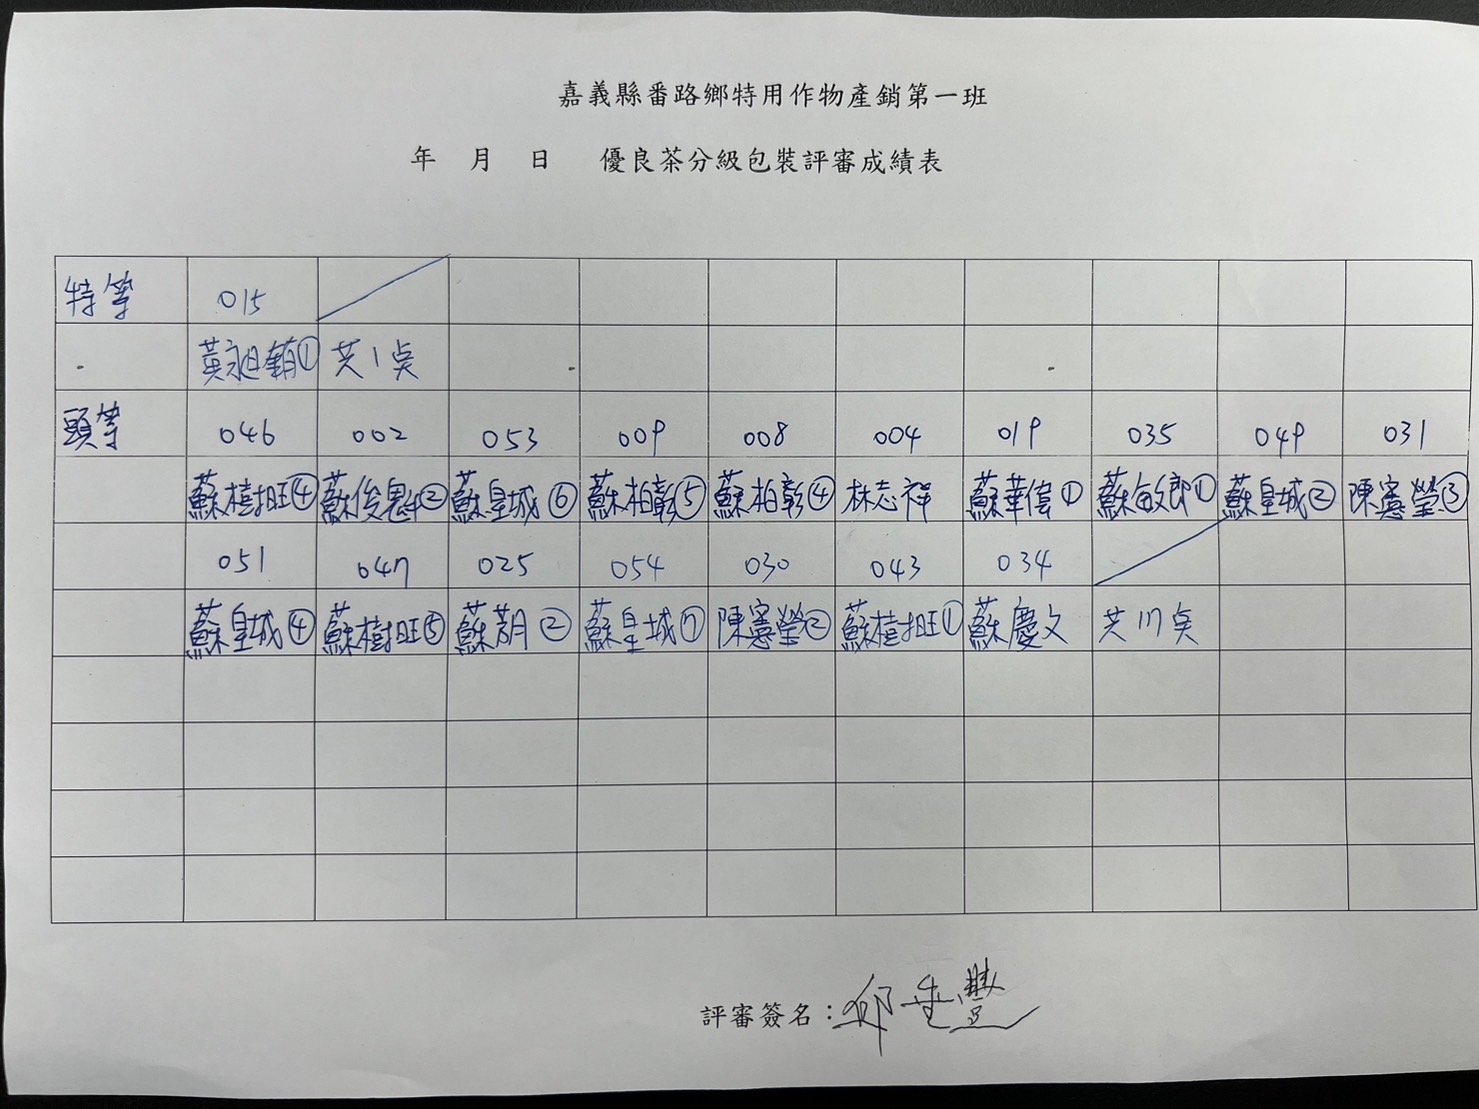 嘉義縣番路鄉特用作物產銷第一班
年 月 日 優良茶分級包裝評審成績表
特等 015
黃永昆銷① 共1點
頭等 046 002 053 009 008 004 019 035 049 031
蘇樹旺④ 蘇俊魁② 蘇皇城⑥ 蘇柏彰⑤ 蘇柏彰④ 林志祥 蘇華偉① 蘇敏郎① 蘇皇城② 陳憲瑩③
051 047 025 054 030 043 034
蘇皇城④ 蘇樹旺⑤ 蘇② 蘇皇城⑦ 陳憲瑩② 蘇樹旺① 蘇慶文 共17點
評審簽名：邱垂豐